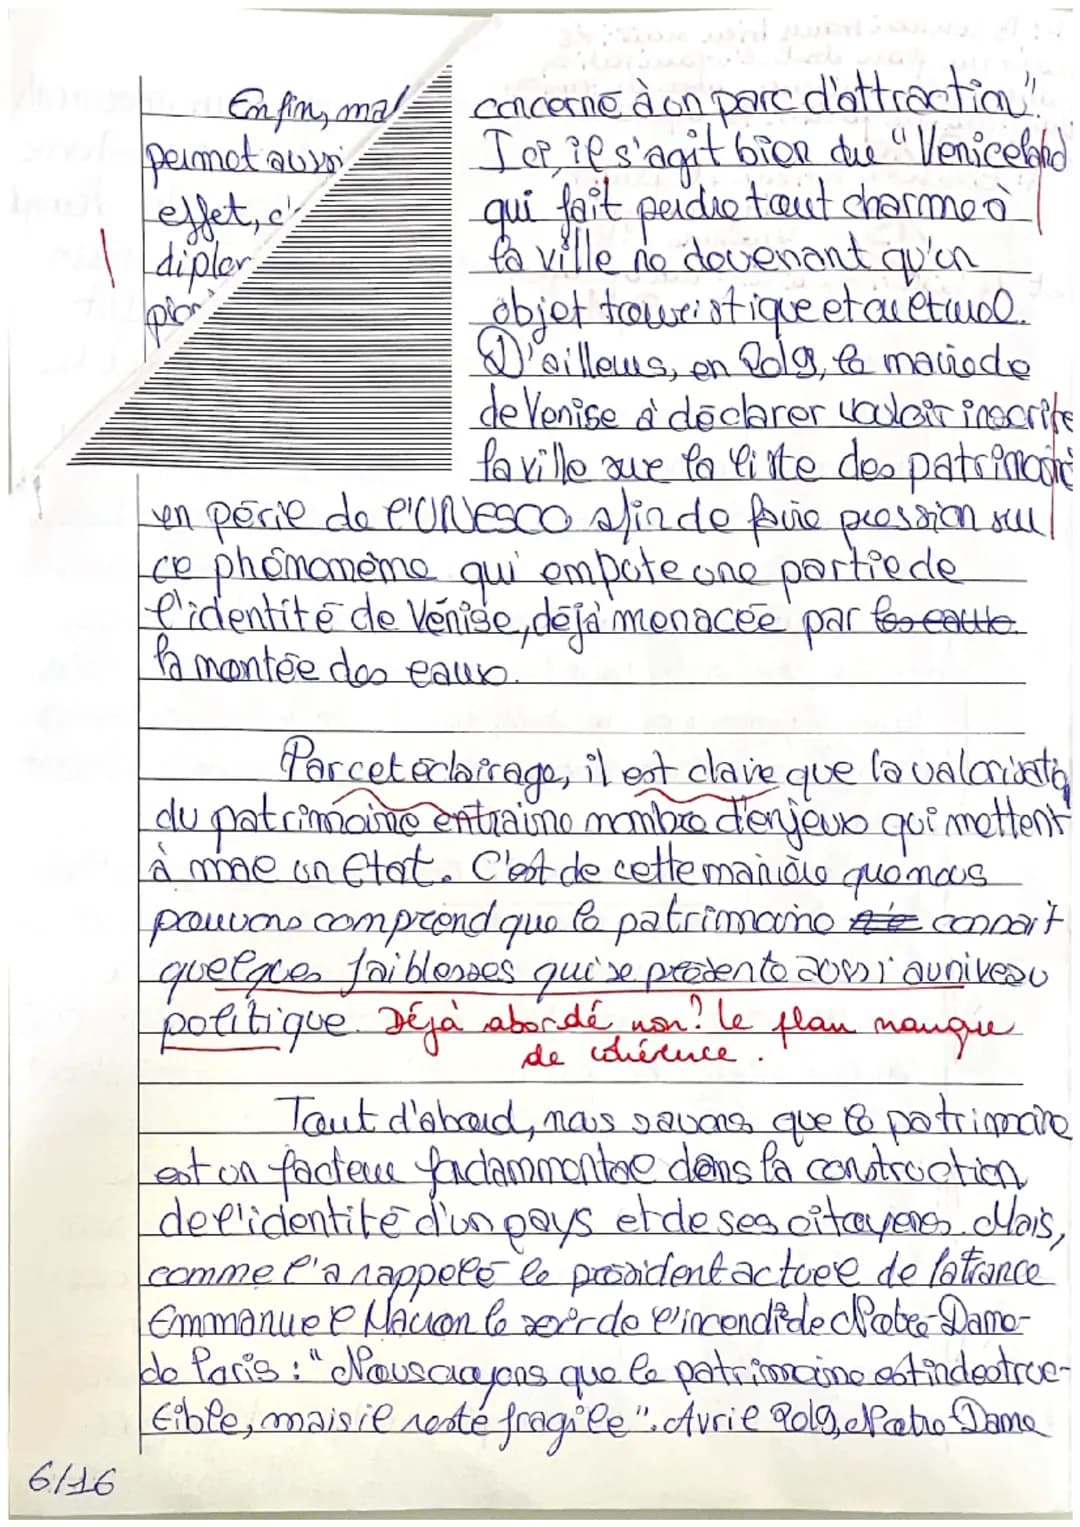 Enfin, mal
permet aussi
effet, c'
diplom
concerne à un parc d'attraction".
Ici, il s'agit bien du "Veniceland
qui fait perdre tout charme à
la ville ne devenant qu'un
objet touristique et culturel.
D'ailleurs, en 2019, la mairie de
de Venise a déclarer vouloir inscrire
la ville sur la liste des patrimoine
en péril de l'UNESCO afin de faire pression sur
ce phénomène qui empute une partie de
l'identité de Vénise, déjà menacée par les eaux.
la montée des eaux.
Par cet éclairage, il est claire que la valorisatio
du patrimoine entraine nombre d'enjeux qui mettent
à mae un Etat. C'est de cette manière que nous
pouvons comprend que le patrimoine connait
quelques faiblesses qui se présente aussi au niveau
politique. Déjà abordé non? Le plan manque
de cohérence.
Tout d'abord, nous savons que le patrimoine
est un facteur fadammentae dans la construction
de l'identité d'un pays et de ses citoyens. Mais,
comme l'a rappelé le président actuel de la France
Emmanuel Macron le soir de l'incendi de Notre-Dame-
de Paris : "Nous croyons que le patrimoine est indestruc-
tible, mais il reste fragile". Avril 2019, Notre-Dame
6/16